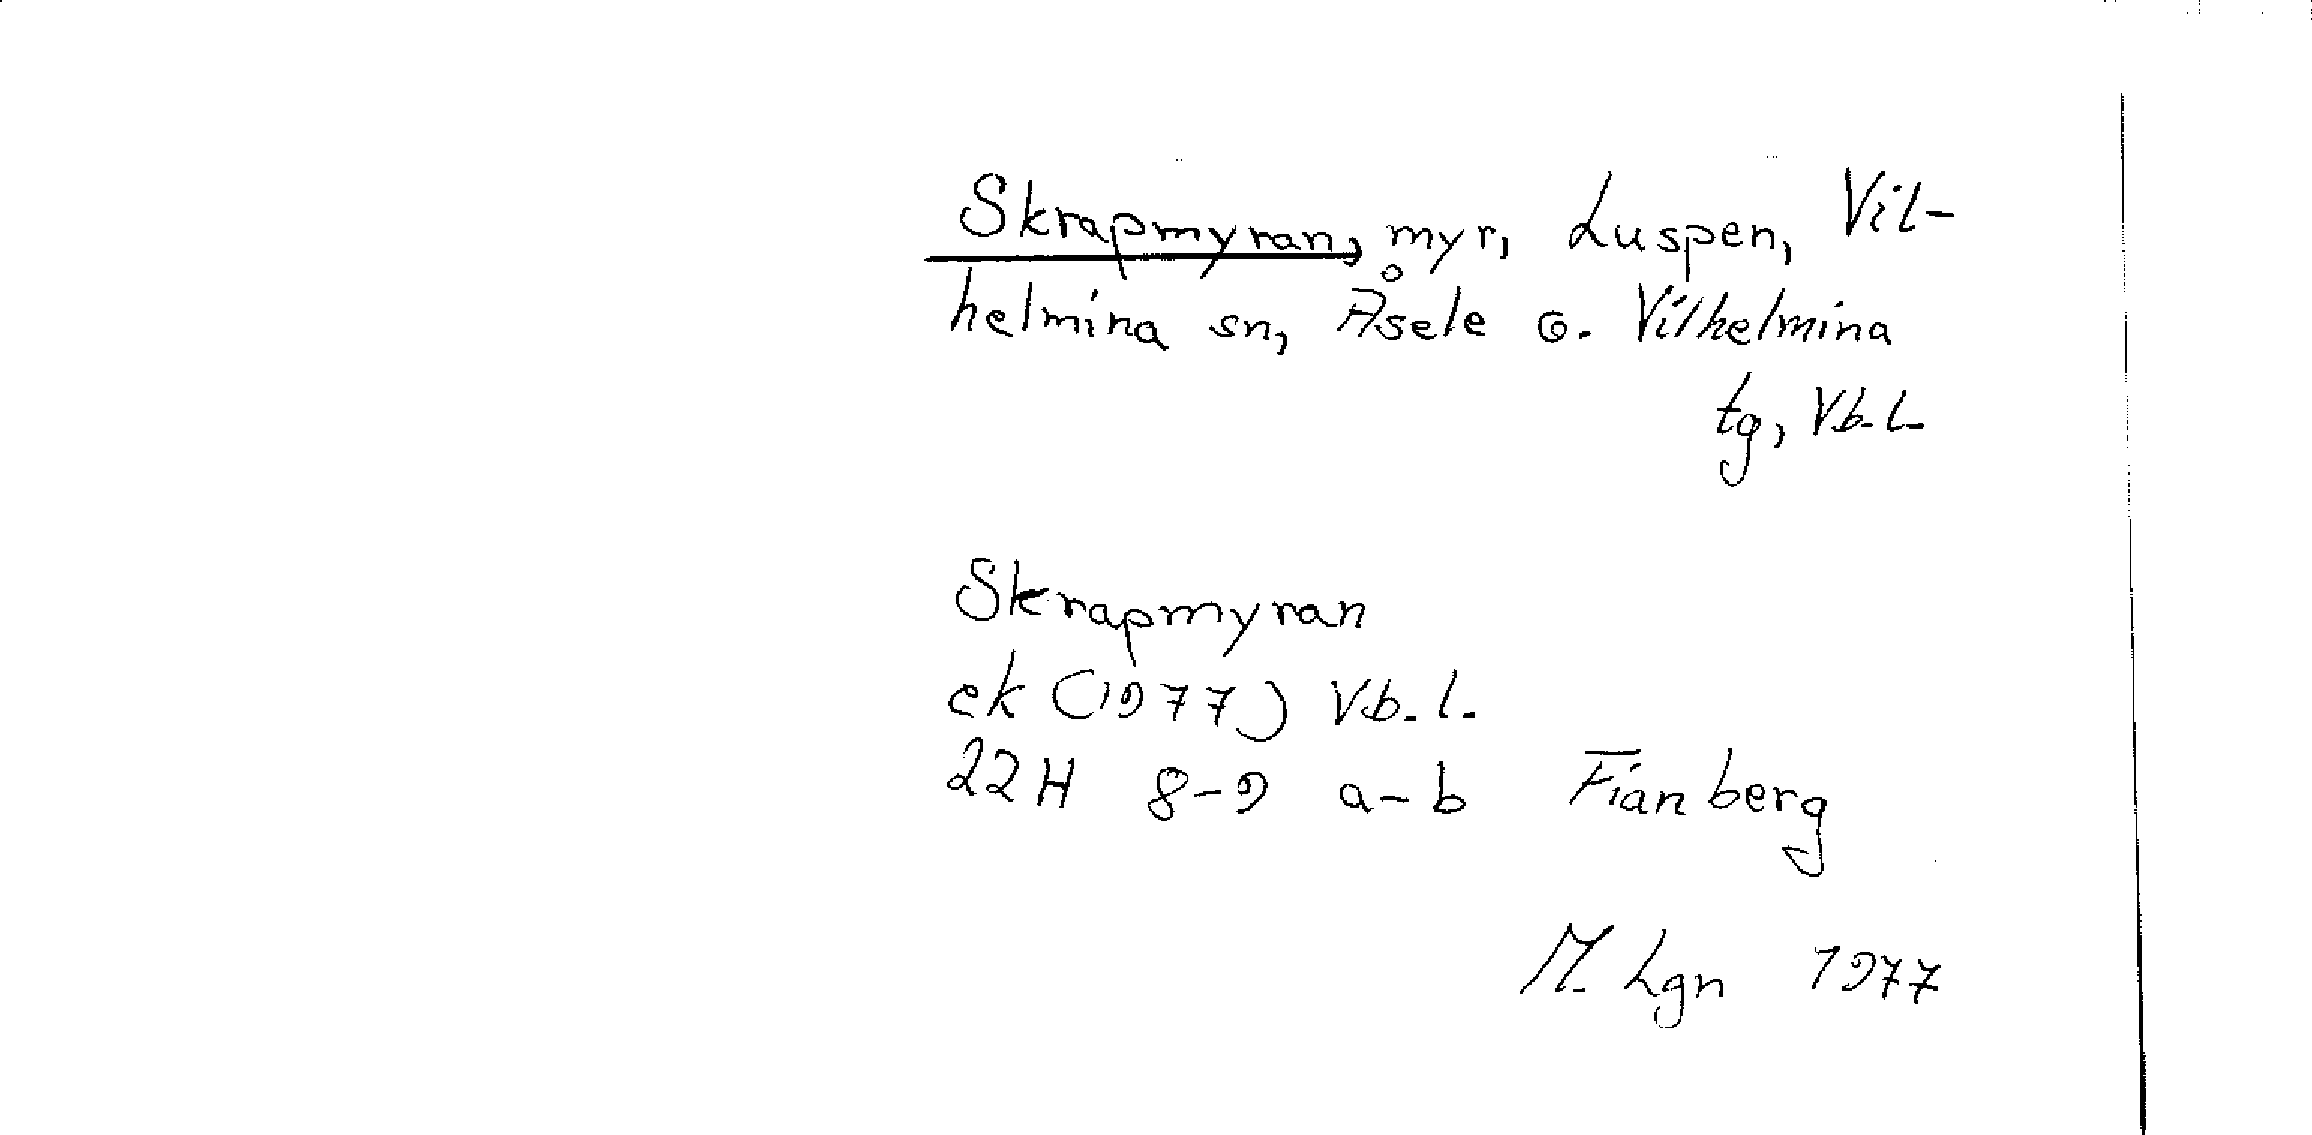 Skrapmyran, myr, Luspen, Vil-
helmina sn, Åsele o. Vilhelmina
tg, Vb. l.
Skrapmyran
ek (1977) Vb. l.
22H 8-9 a-b Fianberg
M. Lgn 1977